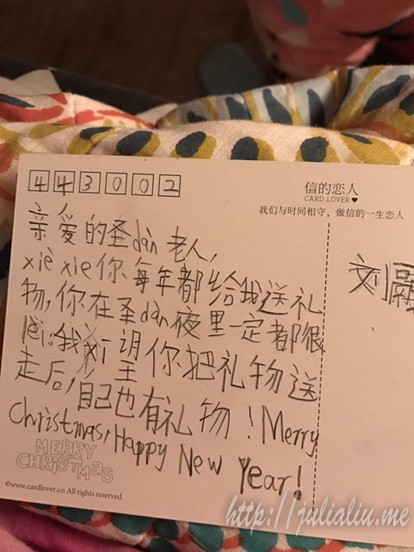 443002
信的恋人
CARD LOVER♥
我们与时间相守，做信的一生恋人
亲爱的圣dàn老人，
xiè xie你每年都给我送礼
物，你在圣dàn夜里一定都很
lèi。我xī望你把礼物送
走后，自己也有礼物！Merry
Christmas，Happy New Year！
刘
MERRY
CHRISTMAS
©www.cardlover.cn All rights reserved.
http://julialiu.me